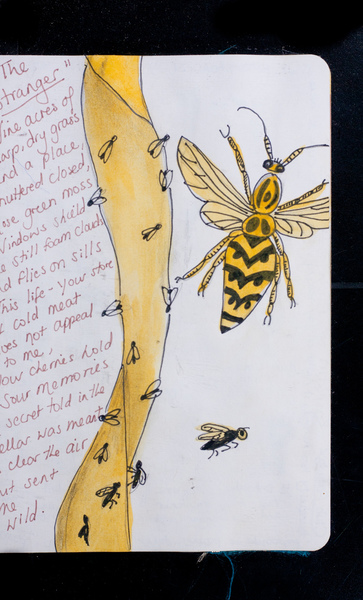 The
Stranger"
acres of
dry grass
and a place,
shuttered closed,
green moss
Windows shield
still foam clouds
flies on sills
This life - Your store
cold meat
does not appeal
to me,
cherries hold
Sour memories
secret told in the
cellar was meant
clear the air
but sent
me
wild.